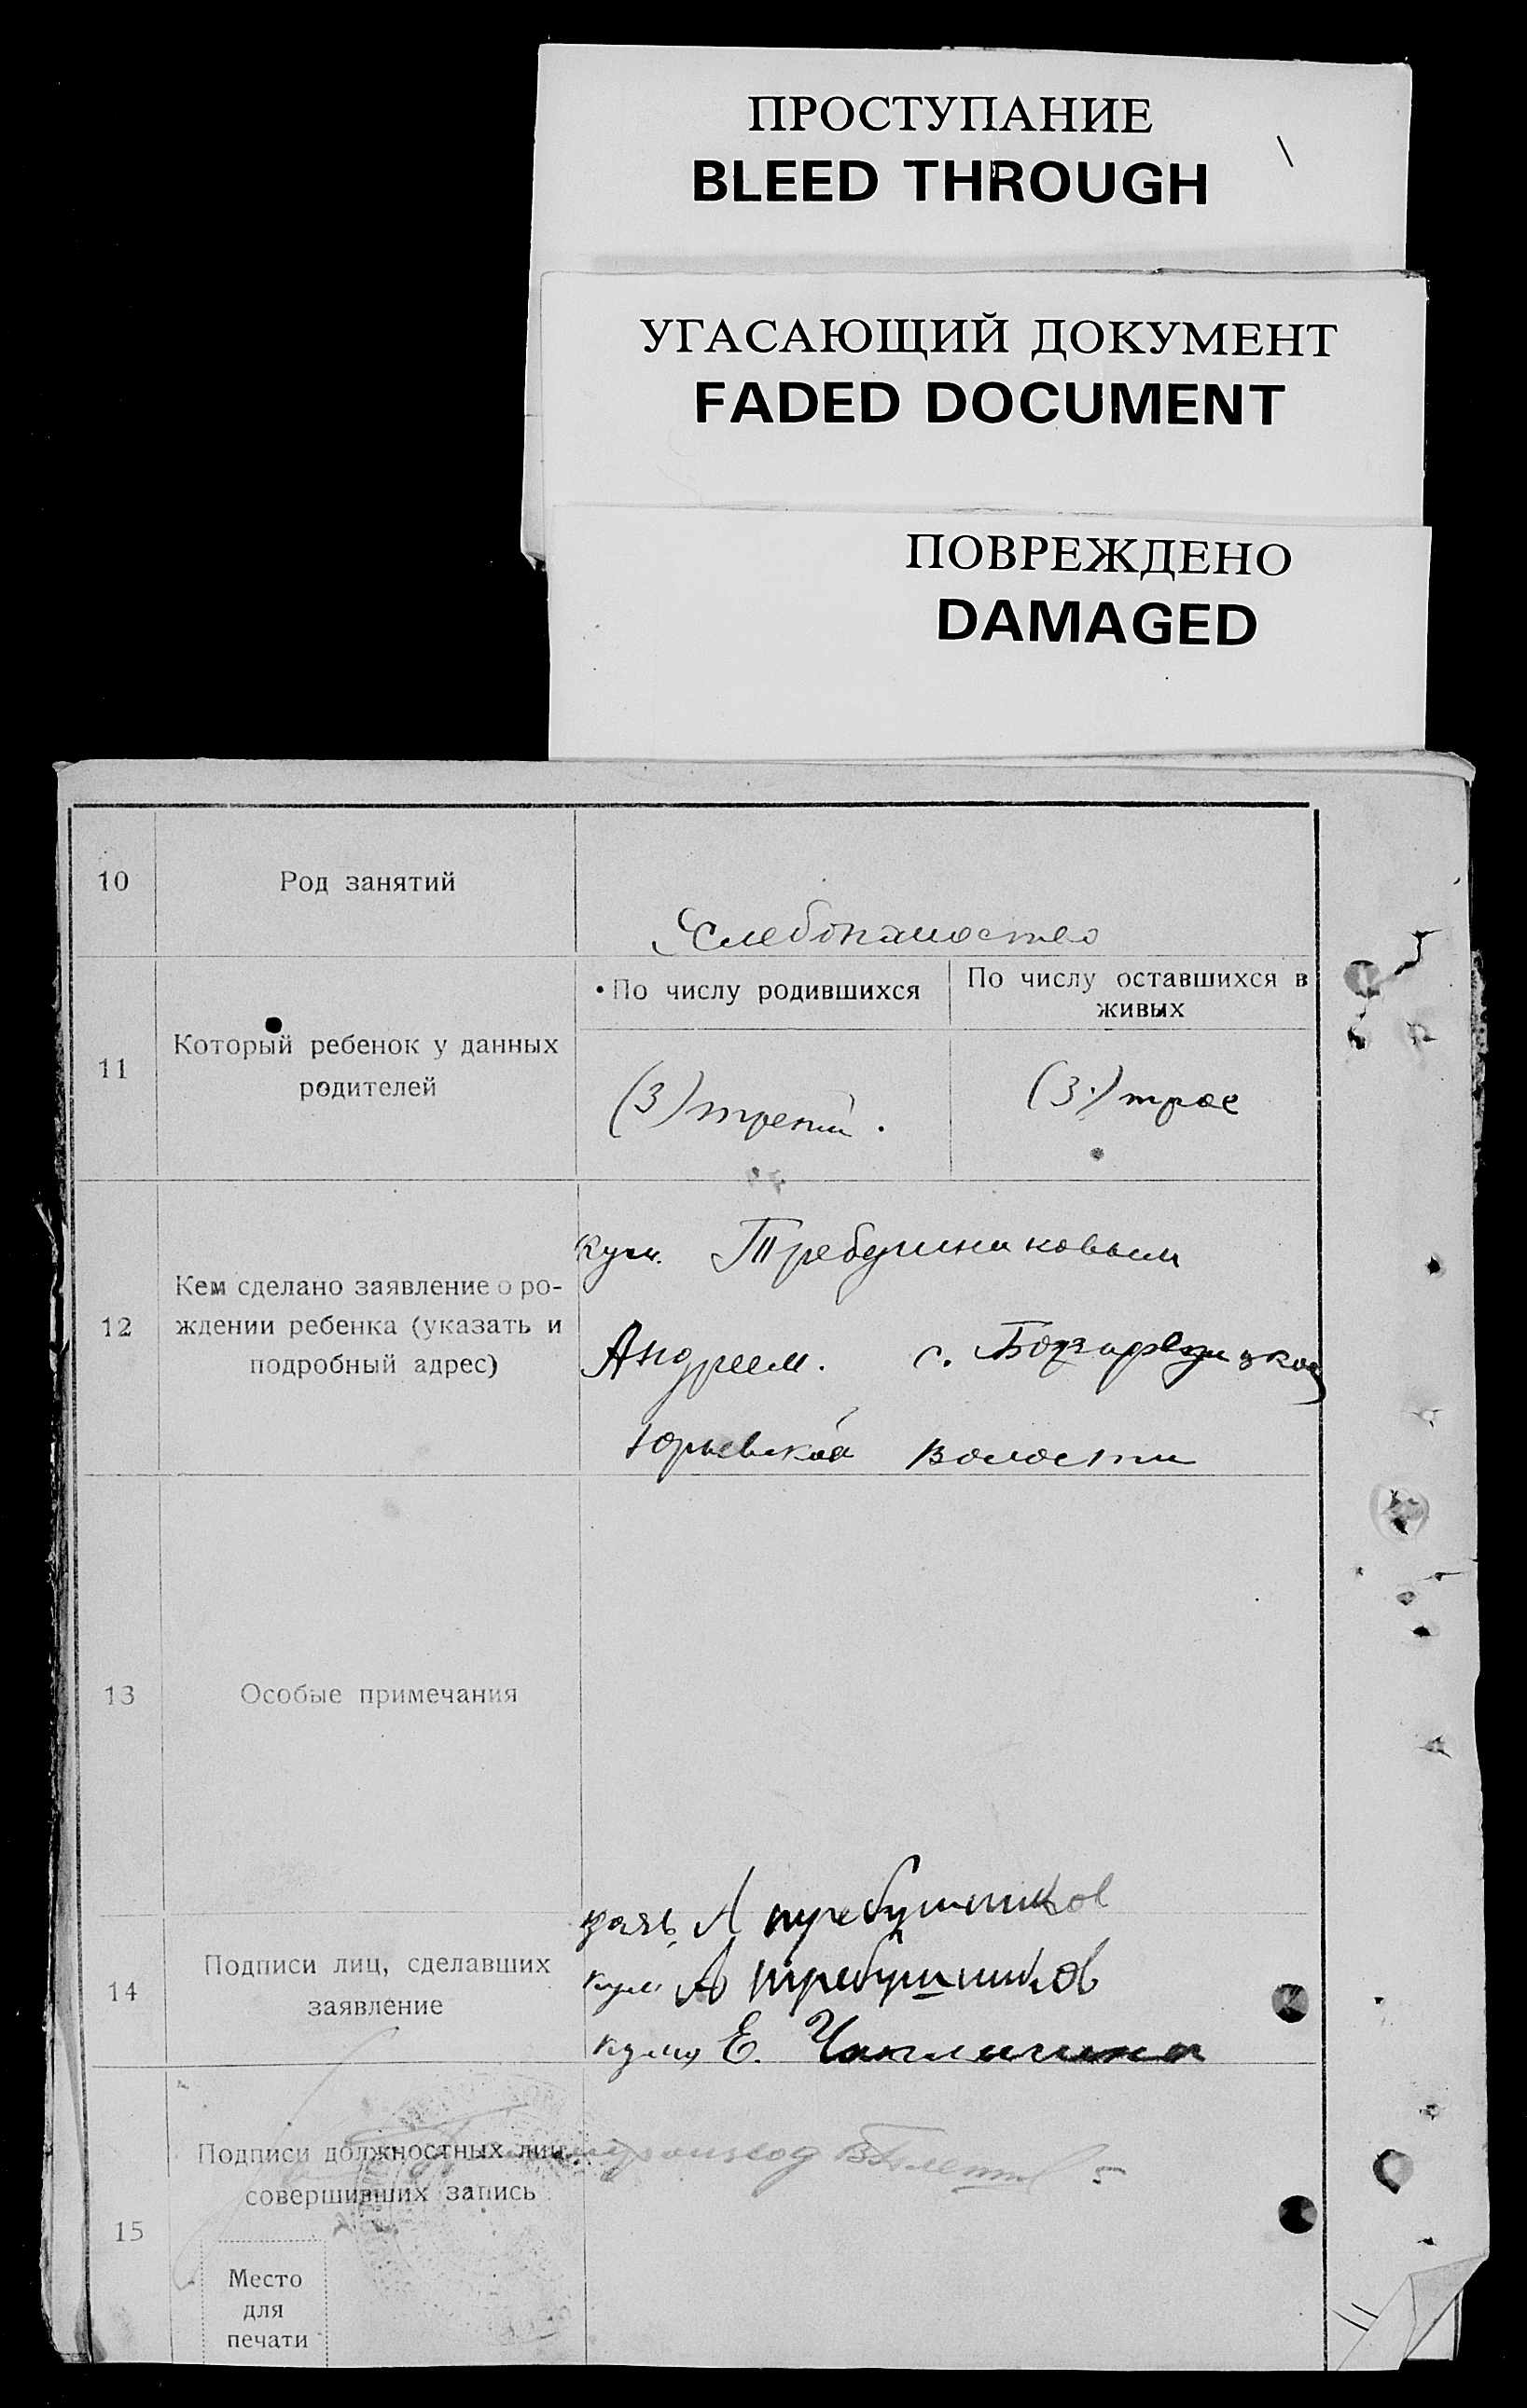 ПРОСТУПАНИЕ
BLEED THROUGH
УГАСАЮЩИЙ ДОКУМЕНТ
FADED DOCUMENT
ПОВРЕЖДЕНО
DAMAGED
10 Род занятий
Хлебопашество
11 Который ребенок у данных
родителей
По числу родившихся
По числу оставшихся в
живых
(3) третий.
(3.) трое
12 Кем сделано заявление о ро-
ждении ребенка (указать и
подробный адрес)
Кум. Требушниковым
Андреем. с.
Юрьевской волости
13 Особые примечания
14 Подписи лиц, сделавших
заявление
А требушников
кум А требушников
кума Е.
15 Подписи должностных лиц,
совершивших запись
Место
для
печати